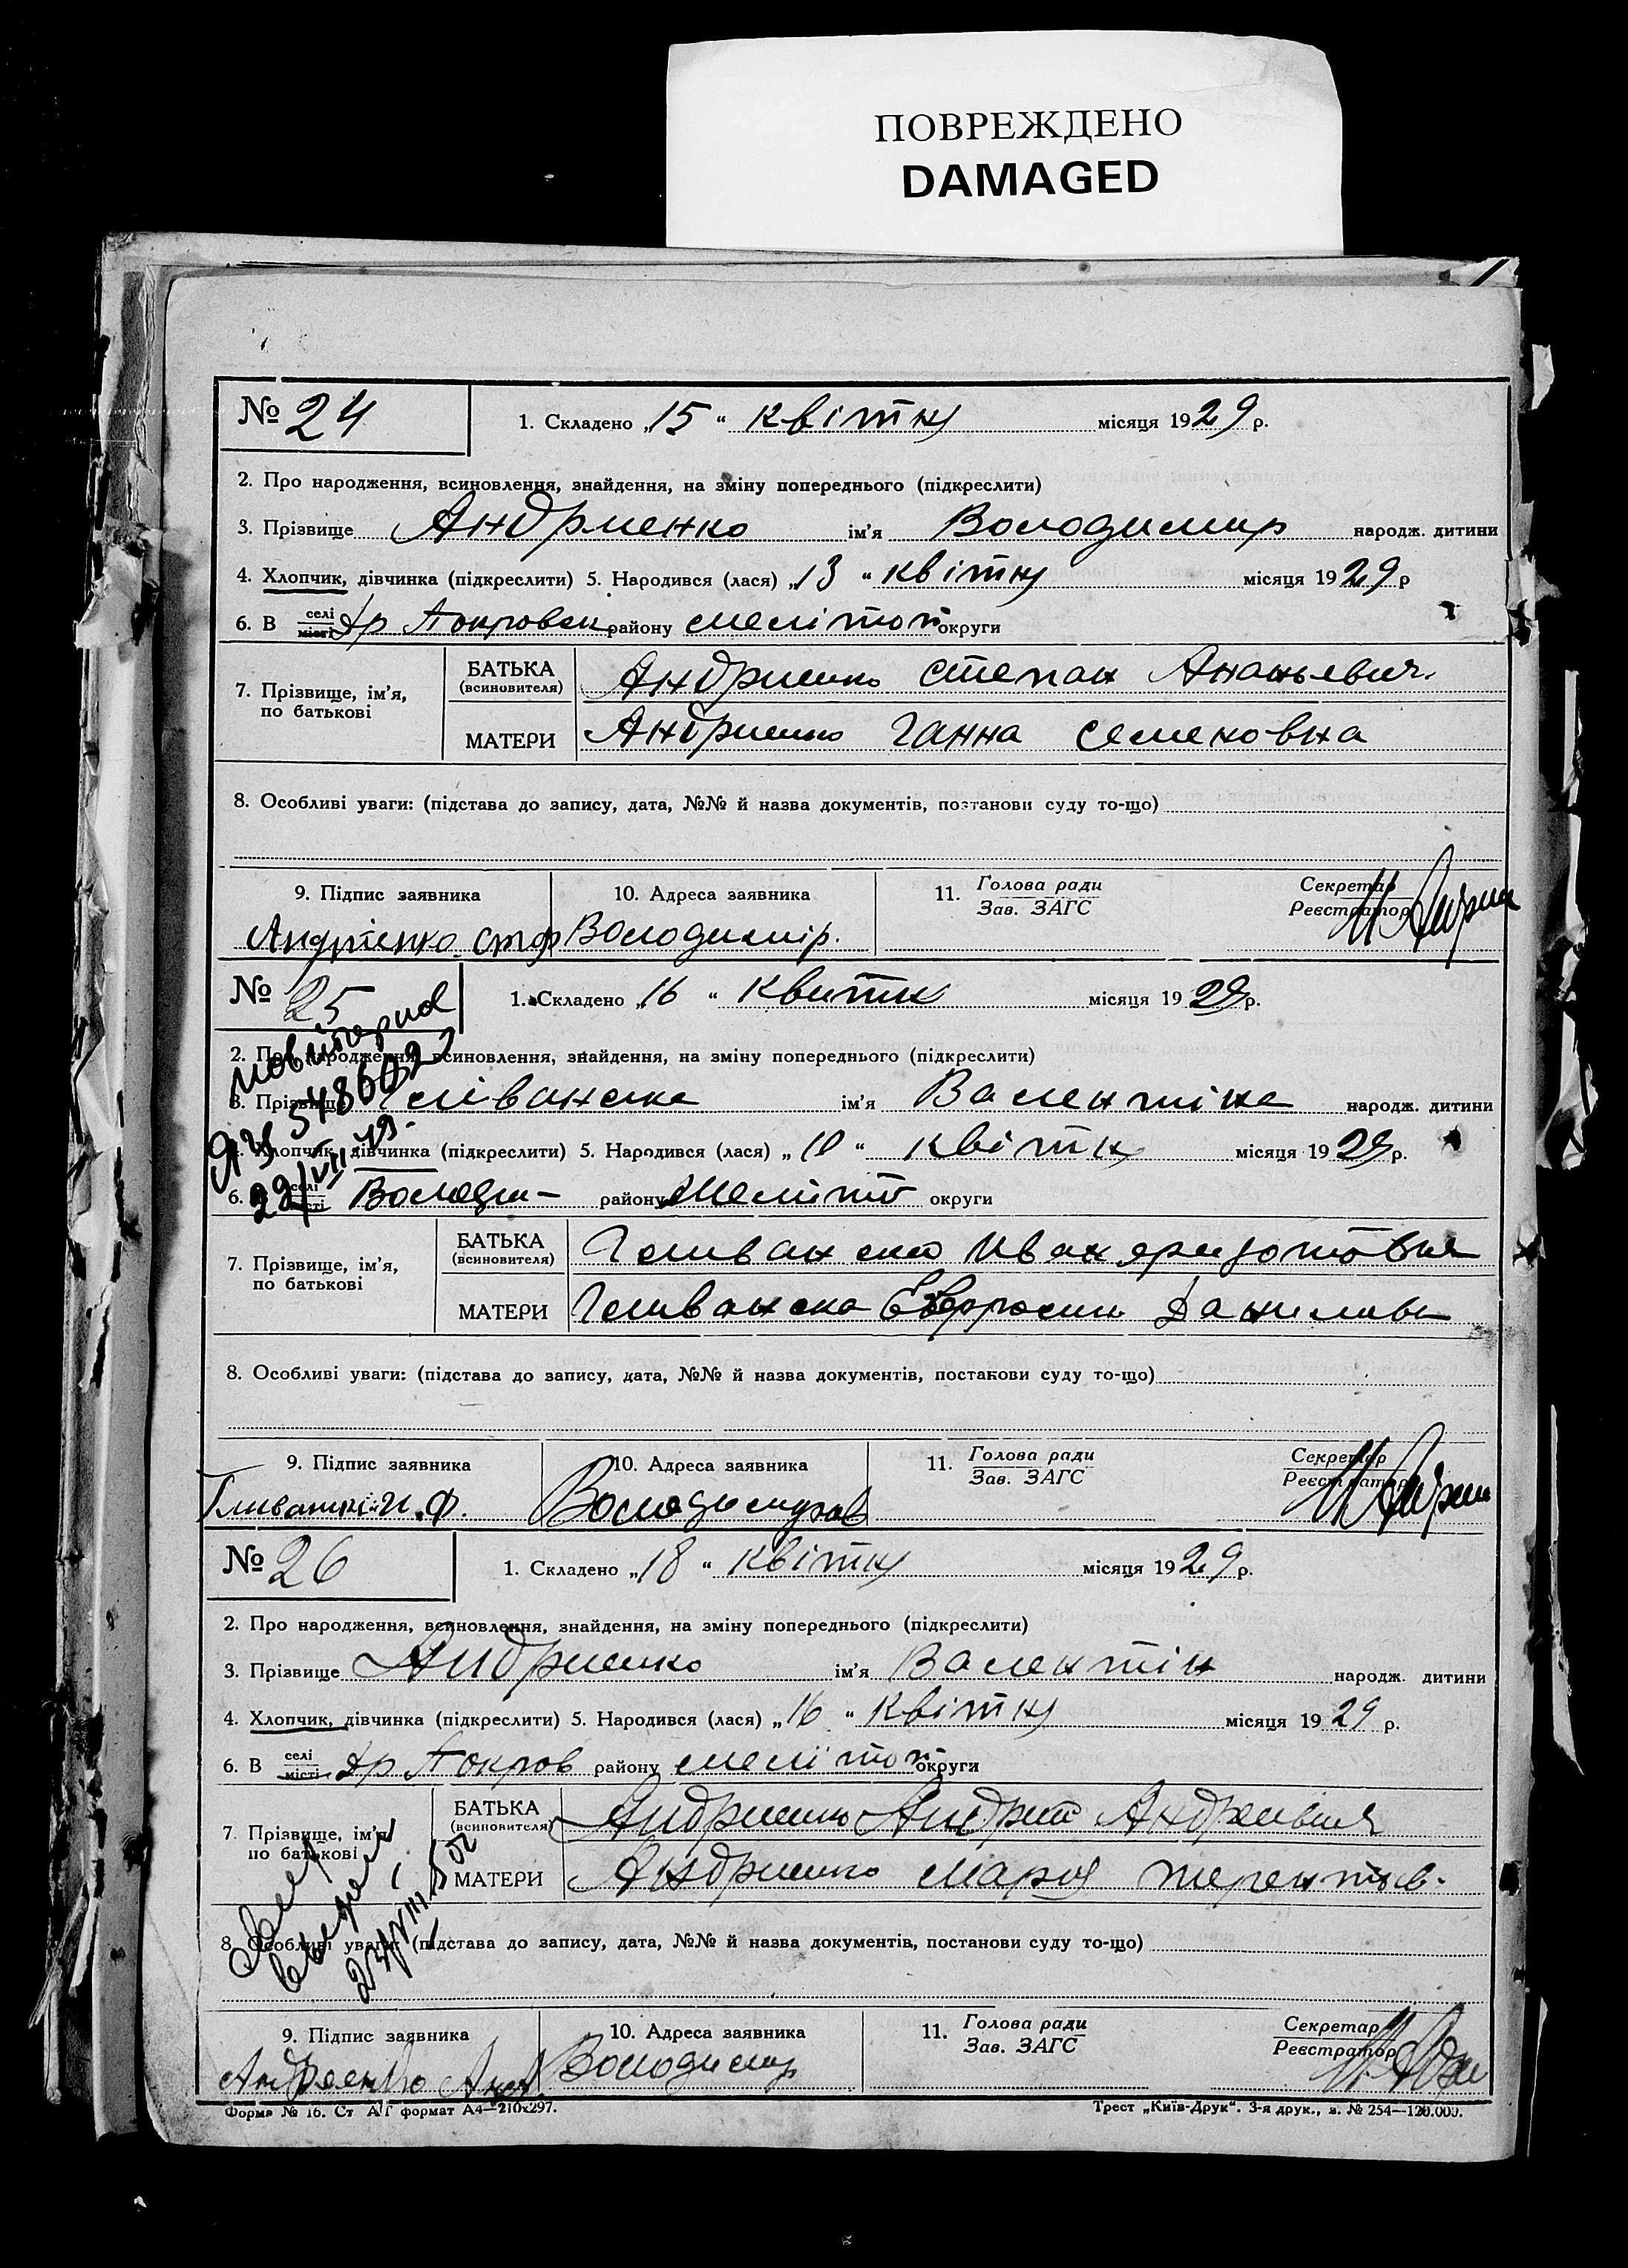 ПОВРЕЖДЕНО
DAMAGED
№ 24
1. Складено „15“ квітня місяця 1929 р.
2. Про народження, всиновлення, знайдення, на зміну попереднього (підкреслити)
3. Прізвище Андриенко ім'я Володимир народж. дитини
4. Хлопчик, дівчинка (підкреслити) 5. Народився (лася) „13“ квітня місяця 1929 р
6. В селі місті Др Покровск району Мелітоп округи
7. Прізвище, ім'я, по батькові
БАТЬКА (всиновителя) Андриенко Степан Ананьевич
МАТЕРИ Андриенко Ганна Семеновна
8. Особливі уваги: (підстава до запису, дата, №№ й назва документів, постанови суду то-що)
9. Підпис заявника 10. Адреса заявника 11. Голова ради Зав. ЗАГС Секретар Реєстратор
Андрієнко Володимір.
№ 25
1. Складено „16“ Квитн місяця 1929 р.
2. Про народження, всиновлення, знайдення, на зміну попереднього (підкреслити)
3. Прізвище ім'я Валентіна народж. дитини
4. Хлопчик, дівчинка (підкреслити) 5. Народився (лася) „10“ квітн місяця 1929 р.
6. В селі місті Володим- району Меліт округи
7. Прізвище, ім'я, по батькові
БАТЬКА (всиновителя) Иван
МАТЕРИ Данилівн
8. Особливі уваги: (підстава до запису, дата, №№ й назва документів, постанови суду то-що)
9. Підпис заявника 10. Адреса заявника 11. Голова ради Зав. ЗАГС Секретар Реєстратор
И. Ф.
№ 26
1. Складено „18“ квітня місяця 1929 р.
2. Про народження, всиновлення, знайдення, на зміну попереднього (підкреслити)
3. Прізвище Андриенко ім'я Валентін народж. дитини
4. Хлопчик, дівчинка (підкреслити) 5. Народився (лася) „16“ Квітня місяця 1929 р.
6. В селі місті Др Покров району Мелітоп округи
7. Прізвище, ім'я, по батькові
БАТЬКА (всиновителя) Андриенко Андрій Андреевич
МАТЕРИ Андриенко Мария Терентьев.
8. Особливі уваги: (підстава до запису, дата, №№ й назва документів, постанови суду то-що)
9. Підпис заявника 10. Адреса заявника 11. Голова ради Зав. ЗАГС Секретар Реєстратор
Андреенко Володимир
Форма № 16. Ст АІ формат А4—210х297. Трест „Київ-Друк“. 3-я друк., з. № 254—120.000.